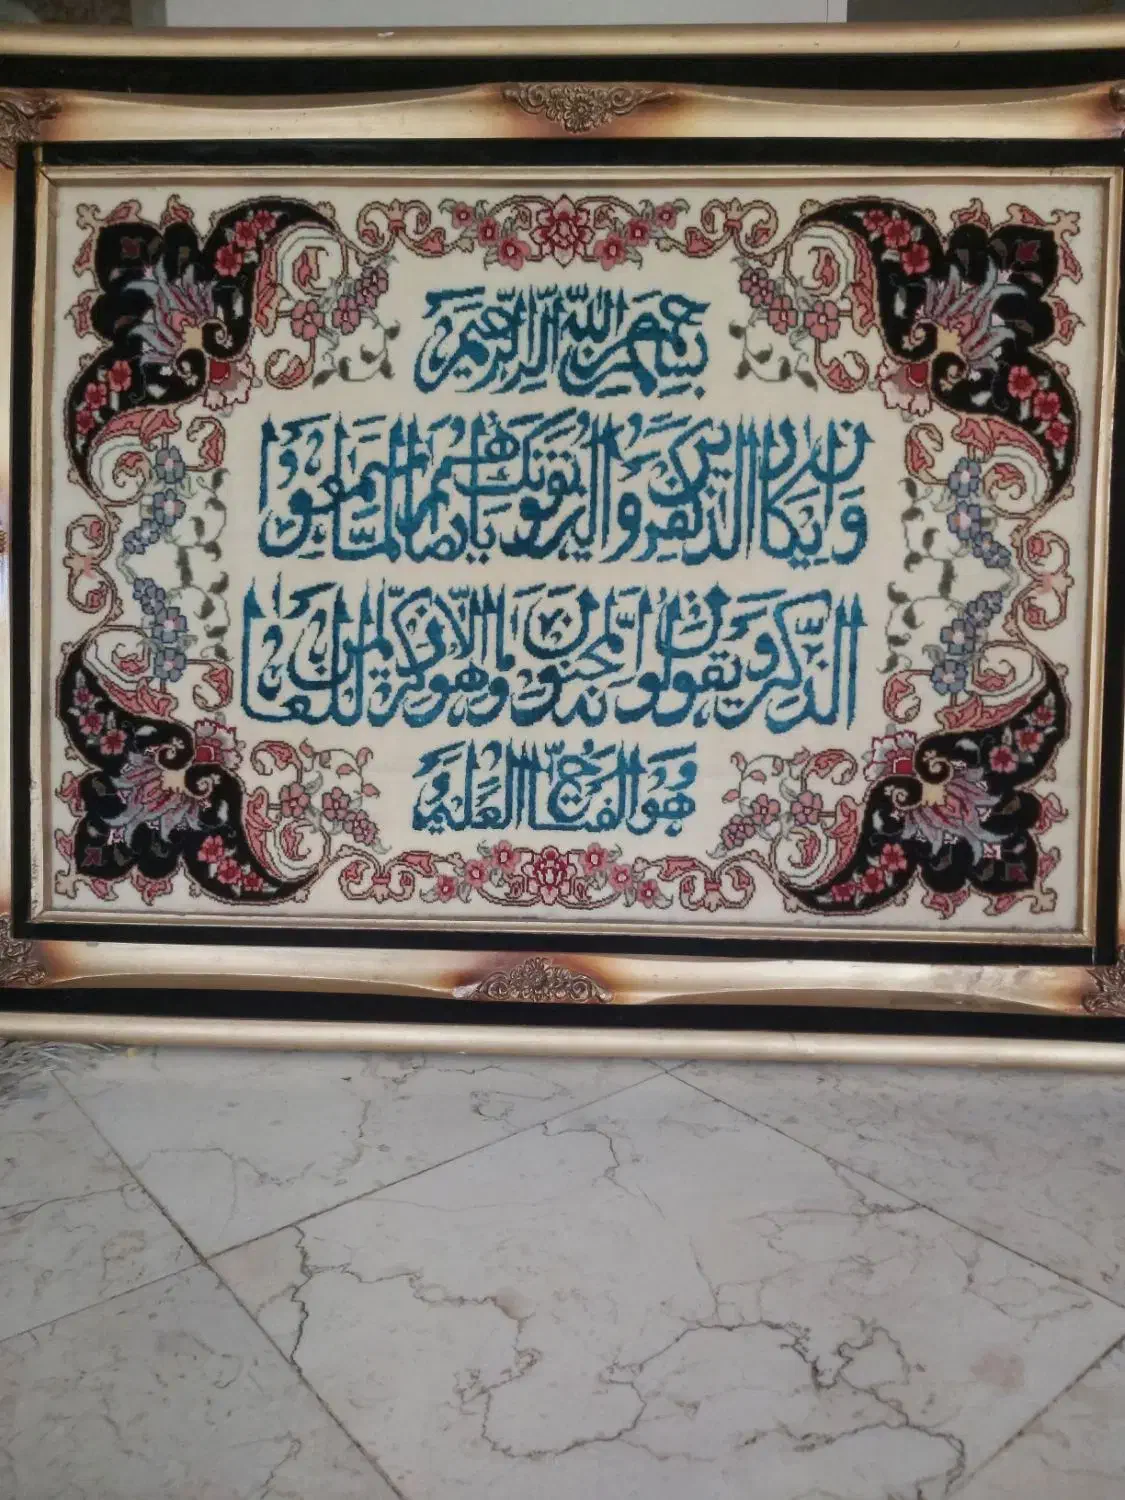 بسم الله الرحمن الرحيم
وان يكاد الذين كفروا ليزلقونك بأبصارهم لما سمعوا
الذكر ويقولون انه لمجنون وما هو الا ذكر للعالمين
هو الفتاح العليم